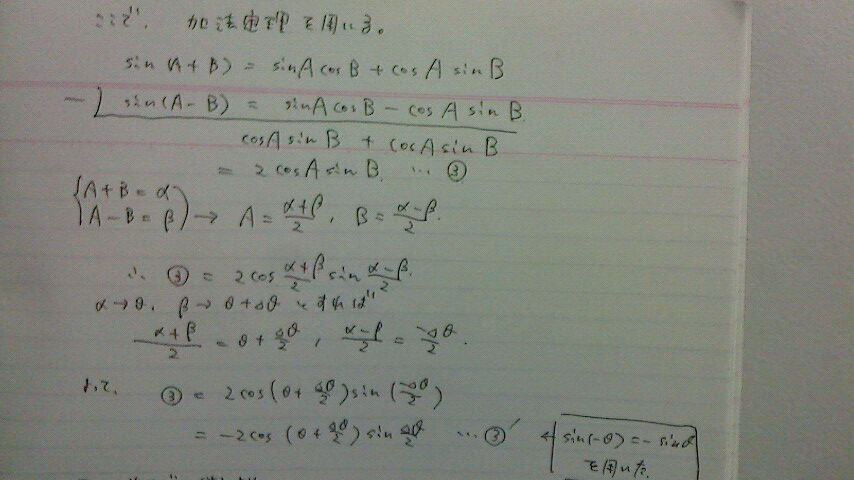 ここで、加法定理を用いる。
sin(A+B) = sinA cosB + cosA sinB
−) sin(A−B) = sinA cosB − cosA sinB.
cosA sinB + cosA sinB
= 2cosA sinB. … ③
{A+B = α
A−B = β) → A = (α+β)/2, B = (α−β)/2.
∴ ③ = 2cos (α+β)/2 sin (α−β)/2.
α→θ, β→θ+Δθ とすれば
(α+β)/2 = θ + Δθ/2, (α−β)/2 = −Δθ/2.
よって、③ = 2cos(θ + Δθ/2) sin(−Δθ/2)
= −2cos(θ + Δθ/2) sin Δθ/2 … ③′ ← sin(−θ) = −sinθ
を用いた.